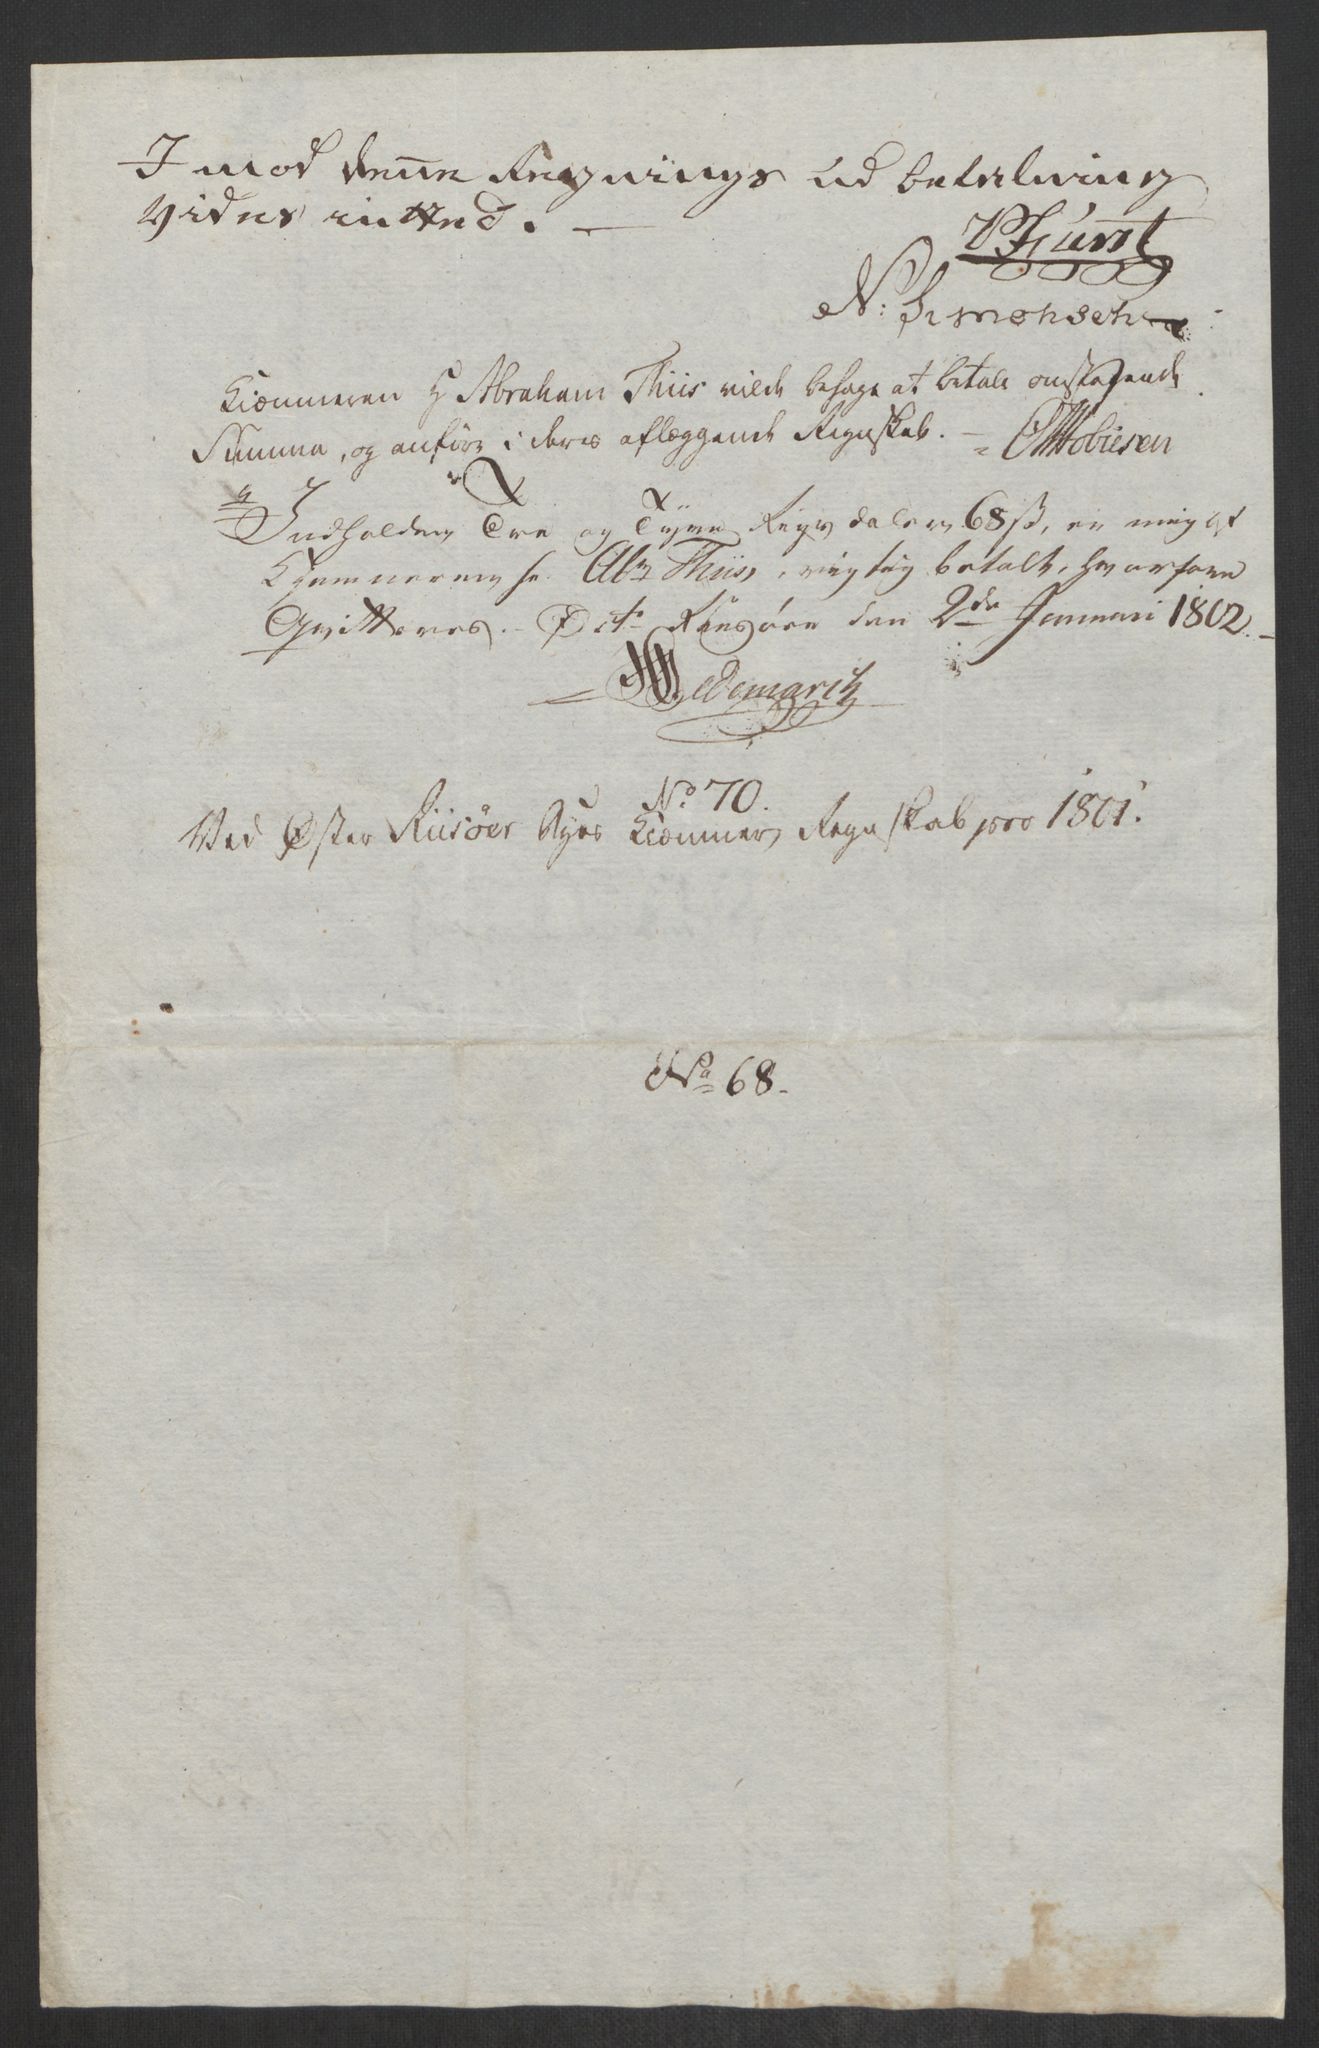 Imod denne Regnings Udbetaling
Vides intted. —
P Fürst
N: Simonsen
Kiæmneren Hr Abraham Thiis vilde behage at betale omstaaende
Summa, og anføre i deres aflæggende Regnskab. —
Indholden Tre og Tyve Rigsdaler 68 s, er mig af
Kjemneren hr. Abr Thiis, rigtig betalt, hvorfore
Qvitteres. Øst Riisøer den 2de Januari 1802. —
Hedemarck
No 70.
Ved Øster Riisøer Byes Kiæmner Regnskab pro 1801.
No 68.